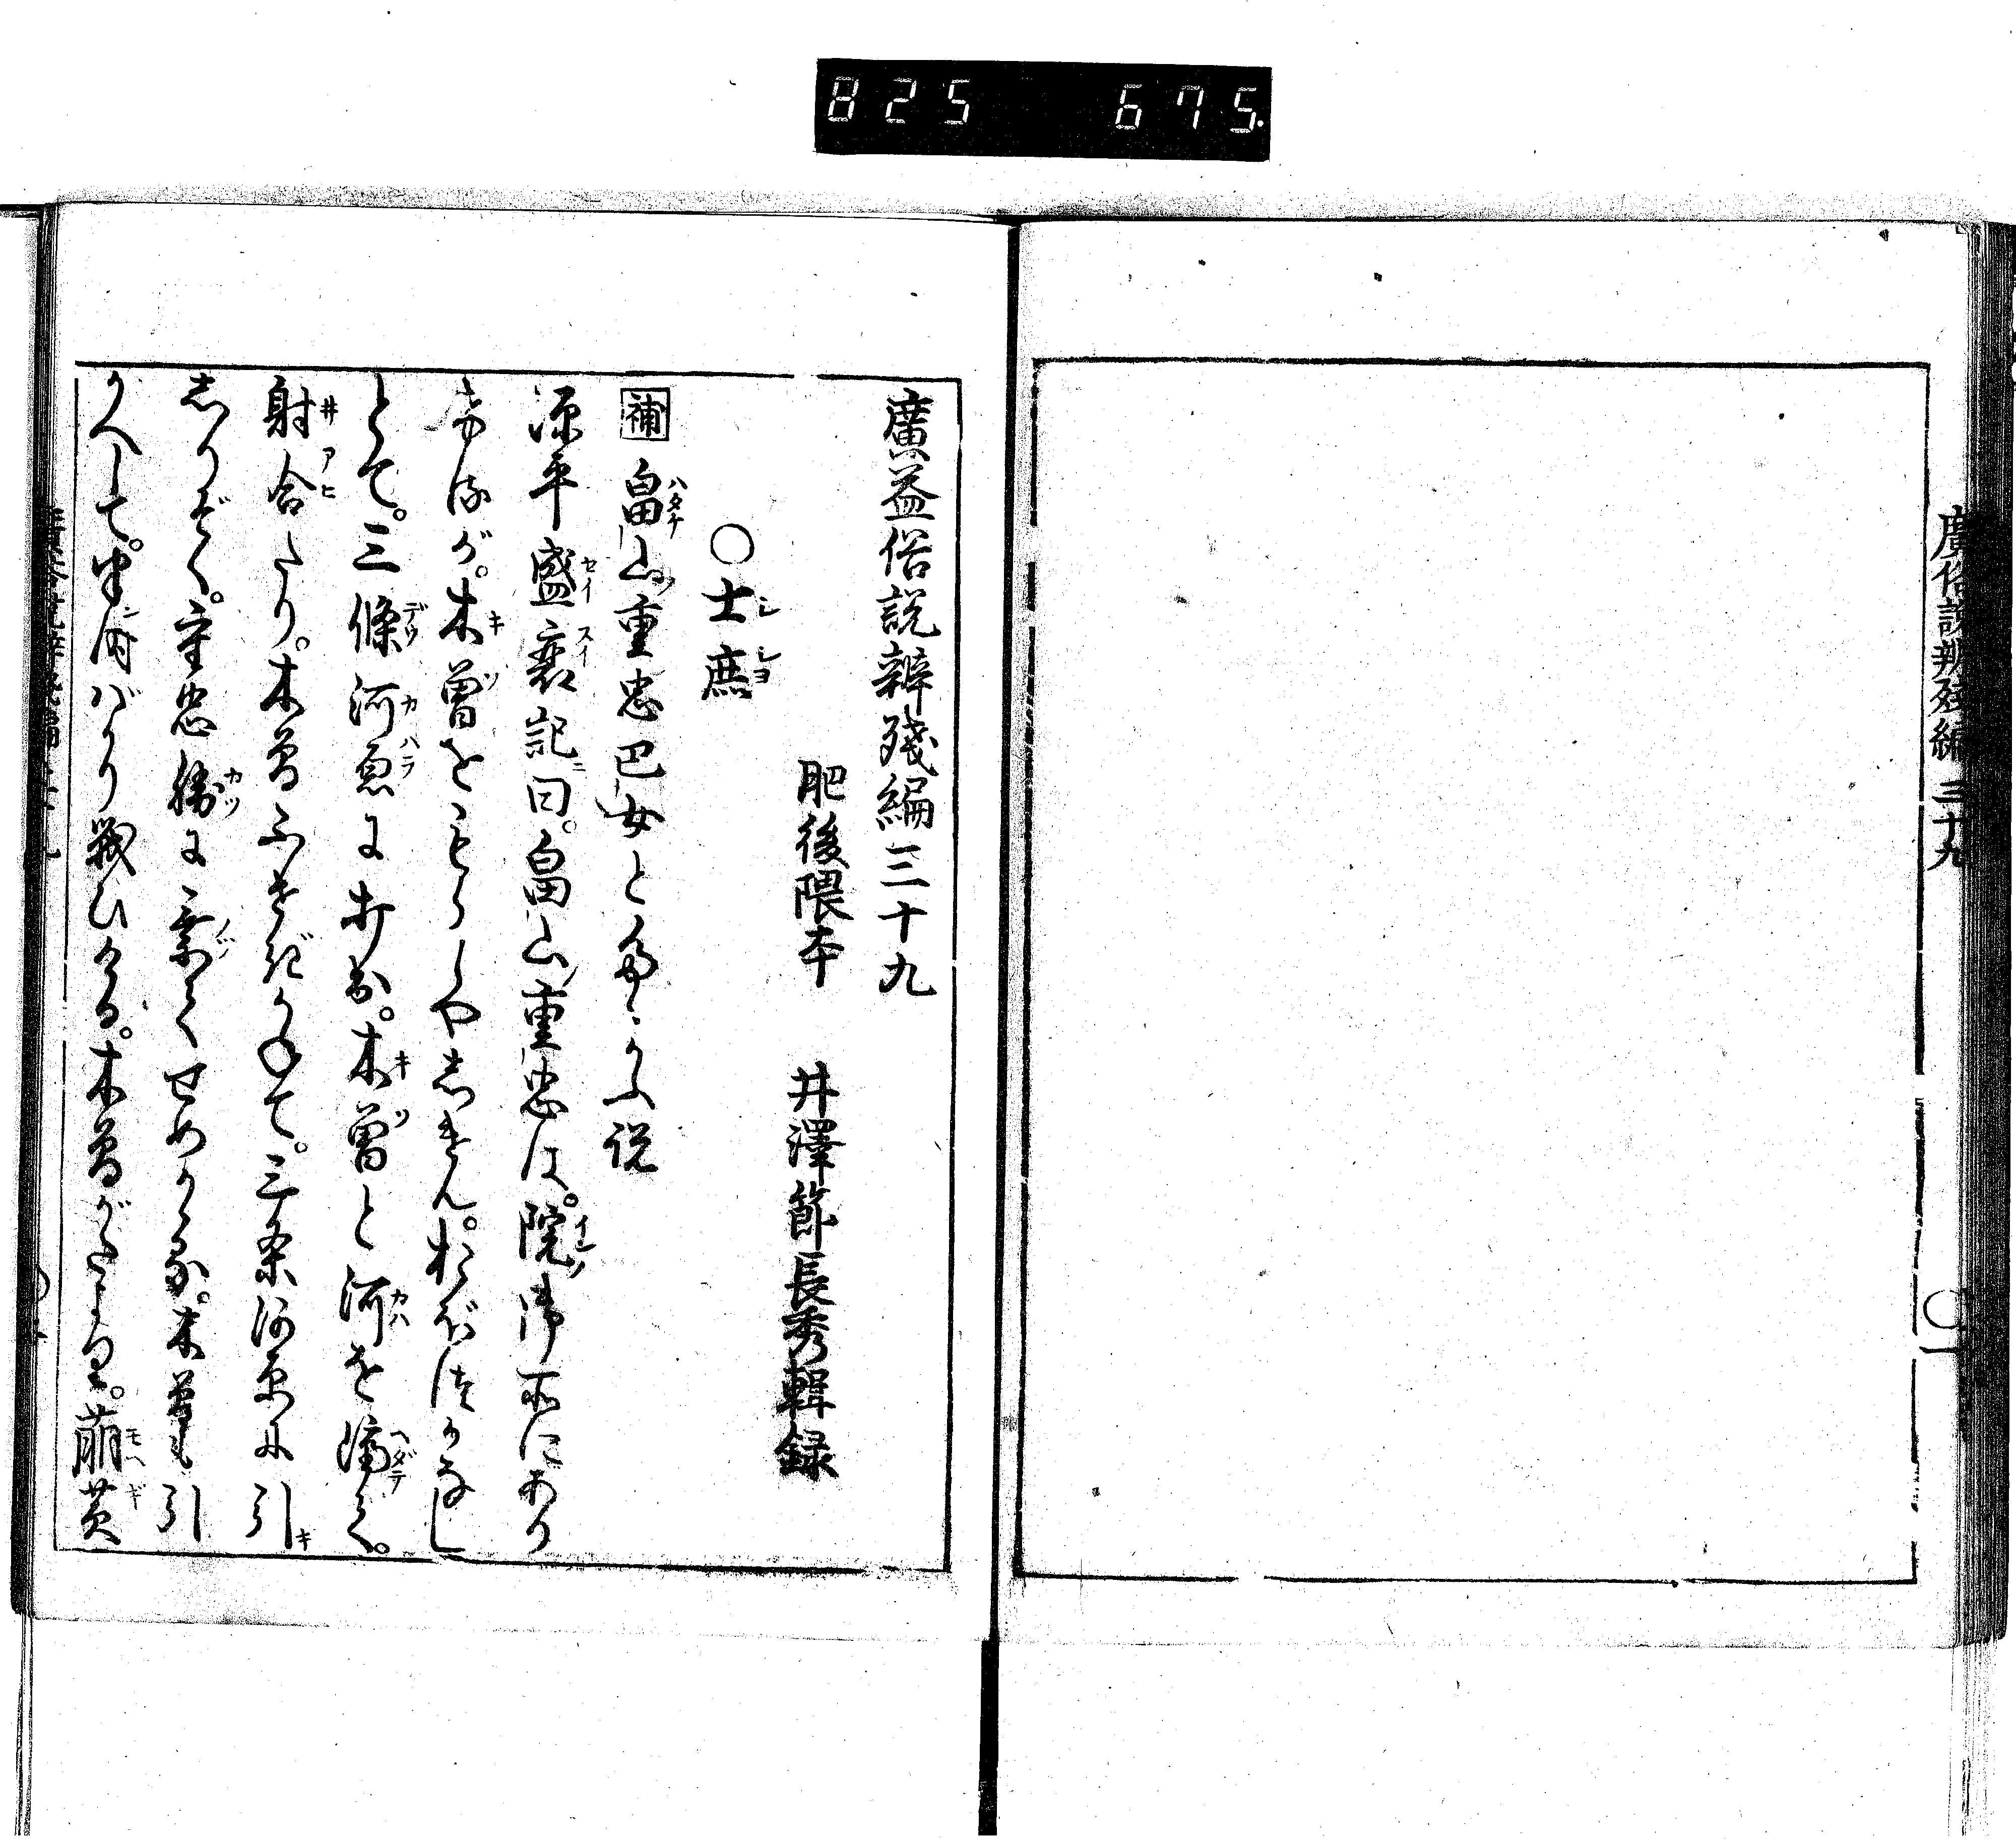 825 675.
廣俗説辨殘編 三十九 〇一
廣益俗説辨殘編三十九
肥後隈本 井澤節長秀輯録
〇士庶
補 畠山重忠巴女とたゝかふ説
源平盛衰記曰。畠山重忠は。院御所にあり
けるが。木曽をもらしやしけん。おぼつかなし
とて。三條河原に打出。木曽と河を隔て。
射合たり。木曽ふせぎかねて。三条河原に引
しりぞく。重忠勝に乗てせめかゝる。木曽も引
かへして。半時ばかり戦ひける。木曽がかたより。萠黄